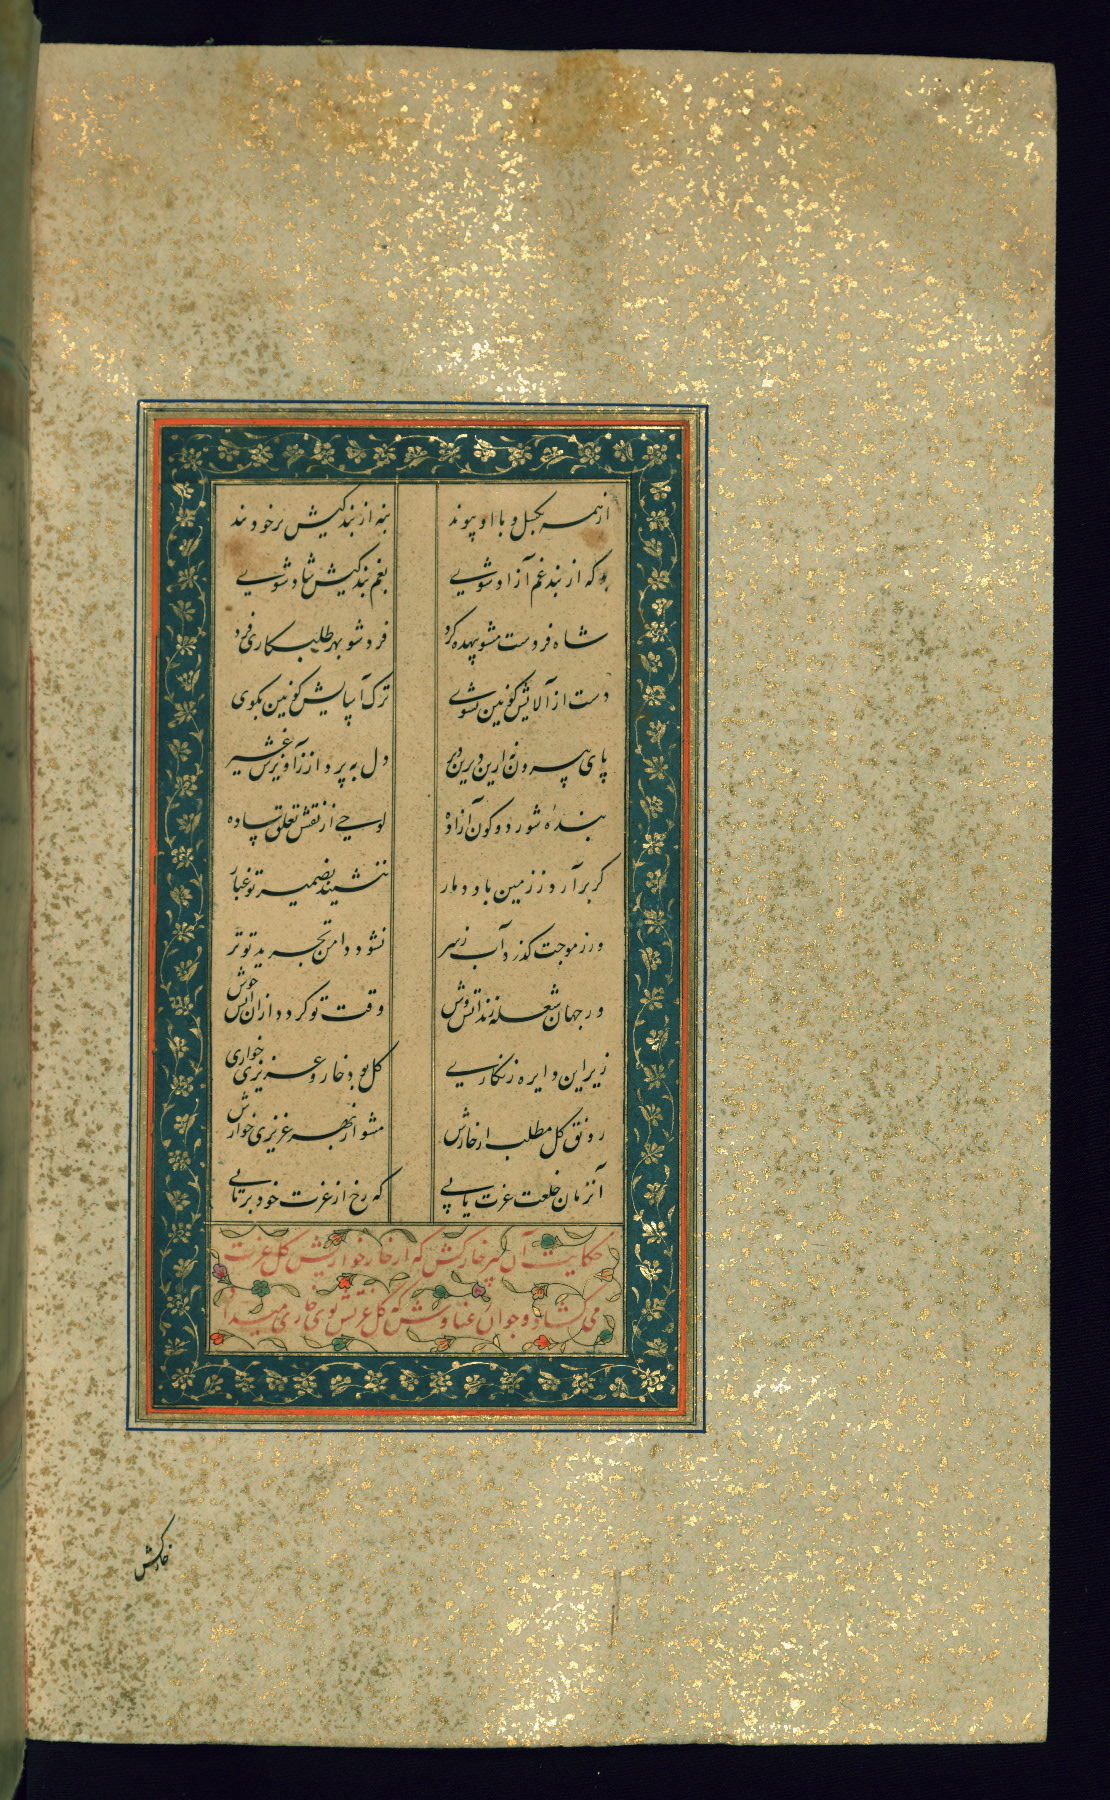 از همه بکسل و با او پیوند بنه از بندکیش بر خود بند
که از بند غم آزاد شوی بغم بندکیش شاد شوی
شاه فردست مشو بیهده کرد فرد شو بهر طلبکاری فرد
دست از آلایش کونین بشوی ترک آسایش کونین بکوی
پای بیرون نه ازین دیرین دیر دل بپرداز ز آویزش غیر
بندهٔ شو ز دو کون آزاده لوحی از نقش تعلق ساده
کر برآرد ز زمین باد دمار ننشیند بضمیر تو غبار
ور ز موجت کذرد آب ز سر نشود دامن تجرید تو تر
ور جهان شعله زند آتش وش وقت تو کردد از ان آتش خوش
زیر این دایره زنکاری کل بود خار و عزیزی خواری
رونق کل مطلب از خارش مشو از بهر عزیزی خوارش
آنزمان خلعت عزت یابی که رخ از عزت خود برتابی
حکایت آن پیر خارکش که از خار خواریش کل عزت
می کشاد و جوان غناوش که کل عزتش بوی خاری میداد
خارکش